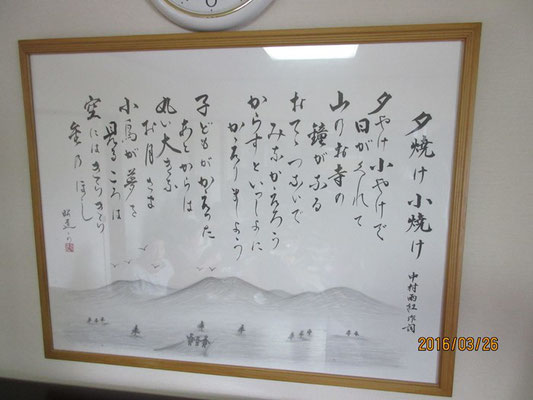 夕焼け小焼け
中村雨紅作詞
夕やけ小やけで
日がくれて
山のお寺の
鐘がなる
おてゝつないで
みなかえろう
からすといっしょに
かえりましょう
子どもがかえった
あとからは
丸い大きな
お月さま
小鳥が夢を
見るころは
空にはきらきら
金のほし
2016/03/26